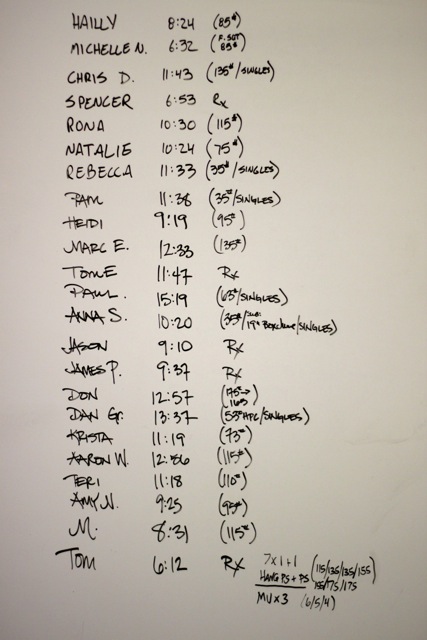 HAILLY 8:24 (85#)
MICHELLE N. 6:32 (F. SQT 83#)
CHRIS D. 11:43 (135#/SINGLES)
SPENCER 6:53 Rx
RONA 10:30 (115#)
NATALIE 10:24 (75#)
REBECCA 11:33 (35#/SINGLES)
PAM 11:38 (35#/SINGLES)
HEIDI 9:19 (95#)
MARC E. 12:33 (135#)
TOM E 11:47 Rx
PAUL. 15:19 (63#/SINGLES)
ANNA S. 10:20 (35#/SUB: 19" /SINGLES)
JASON 9:10 Rx
JAMES P. 9:37 Rx
DON 12:57 (175#→ 165)
DAN G. 13:37 (53# HPC/SINGLES)
KRISTA 11:19 (73#)
AARON W. 12:56 (115#)
TERI 11:18 (110#)
AMY N. 9:25 (95#)
M. 8:31 (115#)
TOM 6:12 Rx 7x1+1 (115/135/135/155
HANG PS + PS 155/175/175)
MU x 3 (6/5/4)